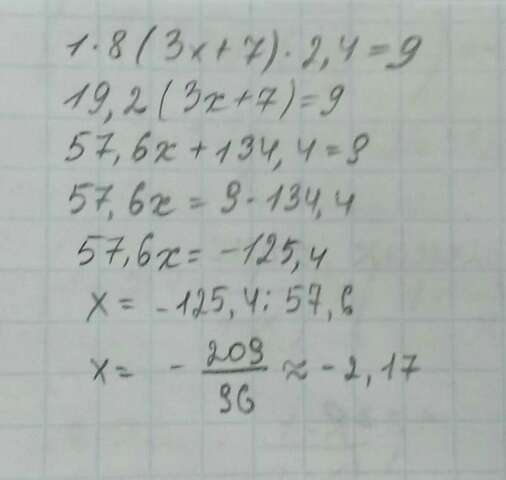 1·8(3x+7)·2,4=9
19,2(3x+7)=9
57,6x+134,4=9
57,6x=9-134,4
57,6x=-125,4
x=-125,4:57,6
x=-209/96≈-2,17